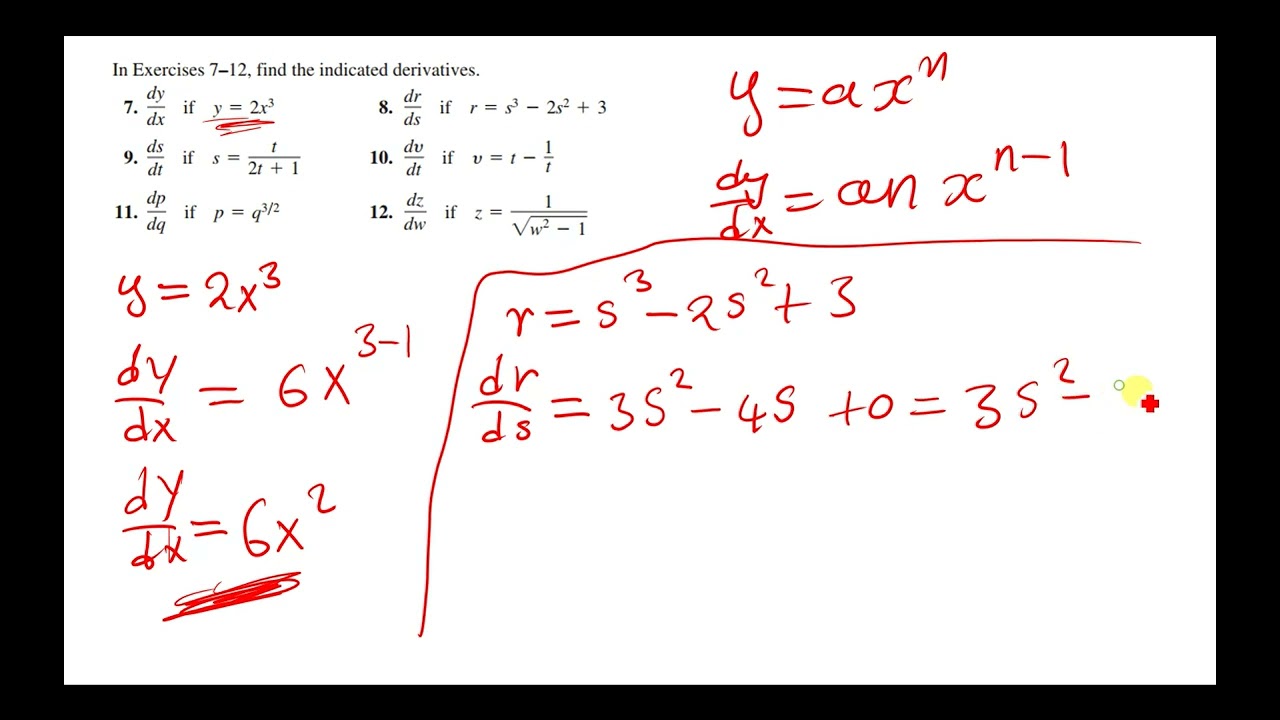 In Exercises 7–12, find the indicated derivatives.
7. dy/dx if y = 2x³
8. dr/ds if r = s³ − 2s² + 3
9. ds/dt if s = t/(2t + 1)
10. dv/dt if v = t − 1/t
11. dp/dq if p = q^(3/2)
12. dz/dw if z = 1/√(w² − 1)
y = axⁿ
dy/dx = an xⁿ⁻¹
y = 2x³
dy/dx = 6x³⁻¹
dy/dx = 6x²
r = s³ − 2s² + 3
dr/ds = 3s² − 4s + 0 = 3s² −